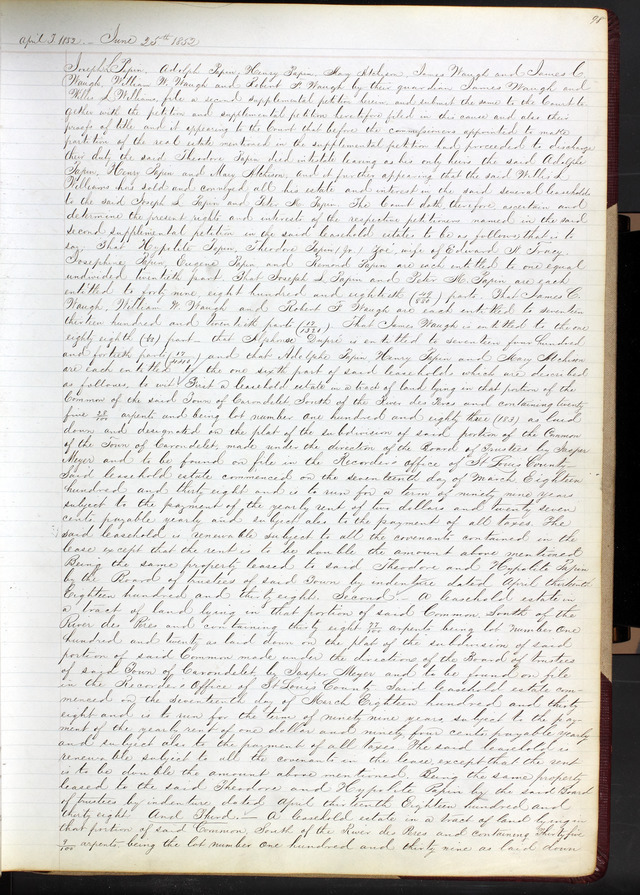 98
April T. 1852. — June 25th 1852
Joseph L Papin, Adolph Papin, Henry Papin, Mary Atchison, James Waugh and James C.
Waugh, William W. Waugh and Robert F Waugh by their guardian James Waugh and
Willis L Williams, file a second supplemental petition herein and submit the same to the Court to-
gether with the petition and supplemental petition heretofore filed in this cause and also their
proofs of title, and it appearing to the Court that before the commissioners appointed to make
partition of the real estate mentioned in the supplemental petition had proceeded to discharge
their duty the said Theodore Papin died intestate leaving as his only heirs the said Adolphe
Papin, Henry Papin and Mary Atchison, and it further appearing that the said Willis L.
Williams has sold and conveyed all his estate and interest in the said several leaseholds
to the said Joseph L Papin and Peter M Papin, The Court doth therefore ascertain and
determine the present rights and interests of the respective petitioners named in the said
second supplemental petition in the said leasehold estates to be as follows, that is to
say. That Hypolite Papin, Theodore Papin Zoé wife of Edward H Tracy
Josephine Papin, Eugene Papin and Papin are each entitled to one equal
undivided twentieth part That Joseph L Papin and Peter M. Papin are each
entitled to forty nine, eight hundred and eightieth (49/880) parts, That James C.
Waugh, William W. Waugh and Robert F Waugh are each entitled to seventeen
thirteen hundred and twentieth parts (17/1320), That James Waugh is entitled to the one
eighty eighth (1/88) part — that Alphonse Dupré is entitled to seventeen four hundred
and fortieth parts (17/440) and that Adolphe Papin, Henry Papin and Mary Atchison
are each entitled to the one sixth part of said leaseholds which are described
as follows, to wit, First a leasehold estate in a tract of land lying in that portion of the
Common of the said Town of Carondelet South of the River des Peres and containing twenty
five arpents and being lot number One hundred and eighty three (183) as laid
down and designated on the plat of the subdivision of said portion of the Common
of the Town of Carondelet, made under the direction of the Board of Trustees by Jasper
Meyer and to be found on file in the Recorders office of St Louis County
Said leasehold estate commenced on the seventeenth day of March Eighteen
hundred and thirty eight and is to run for a term of ninety nine years
subject to the payment of the yearly rent of two dollars and twenty seven
cents payable yearly and subject also to the payment of all taxes. The
said leasehold is renewable subject to all the covenants contained in the
lease except that the rent is to be double the amount above mentioned
Being the same property leased to said Theodore and Hypolite Papin
by the Board of trustees of said Town by indenture dated April thirteenth
Eighteen hundred and thirty eight. Second — A leasehold estate in
a tract of land lying in that portion of said Common, South of the
River des Peres and containing thirty eight arpents being lot number One
hundred and twenty as laid down on the plat of the subdivision of said
portion of said Common made under the direction of the Board of trustees
of said Town of Carondelet by Jasper Meyer and to be found on file
in the Recorders Office of St Louis County Said leasehold estate com-
menced on the seventeenth day of March Eighteen hundred and thirty
eight and is to run for the term of ninety nine years subject to the pay-
ment of the yearly rent of one dollar and ninety four cents payable yearly
and subject also to the payment of all taxes. The said leasehold is
renewable subject to all the covenants in the lease, except that the rent
is to be double the amount above mentioned, Being the same property
leased to the said Theodore and Hypolite Papin by the said Board
of trustees by indenture dated April thirteenth Eighteen hundred and
thirty eight And Third. — A leasehold estate in a tract of land lying in
that portion of said Common, South of the River des Peres and containing Thirty five
9/100 arpents being the lot number One hundred and thirty nine as laid down